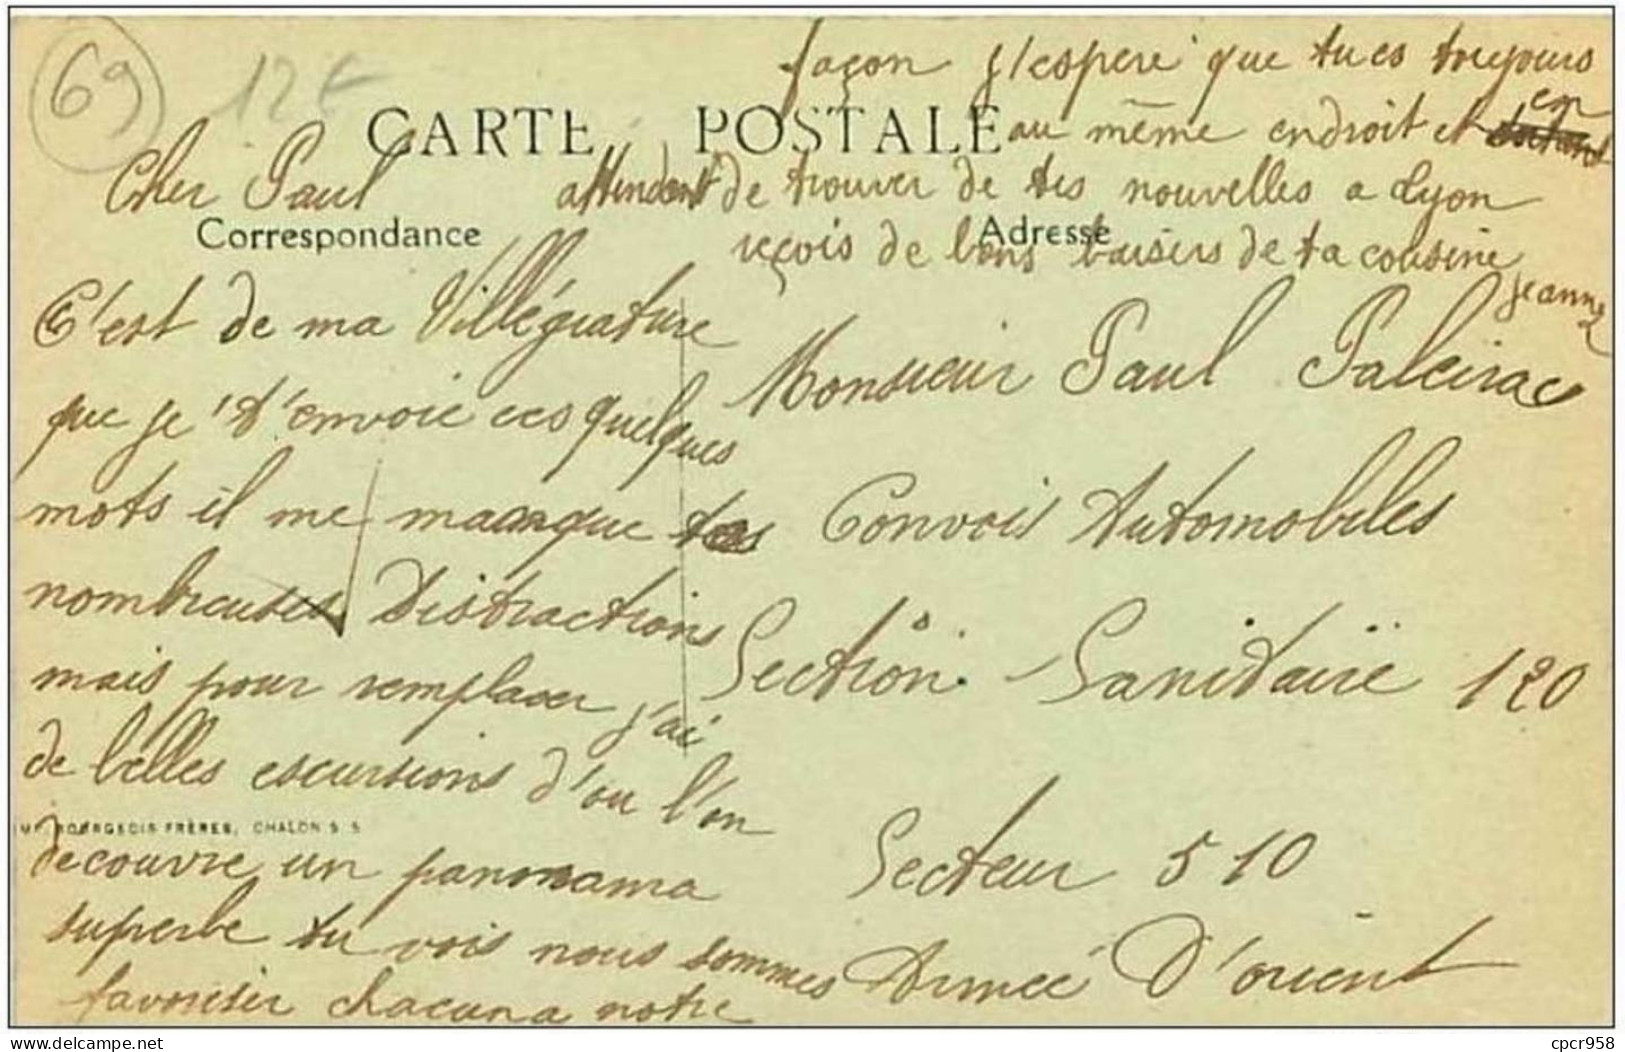 69
12€
CARTE POSTALE
Correspondance
Adresse
Cher Paul
C'est de ma Villégiature
que je t'envoie ces quelques
mots il me manque
nombreuses distractions
mais pour remplacer j'ai
de belles escursions d'ou l'on
decouvre un panorama
superbe tu vois nous sommes
favoriser chacuna notre
façon j'espere que tu es toujours
au même endroit et en
attendent de trouver de tes nouvelles a Lyon
reçois de bons baisers de ta cousine
Jeanne
Monsieur Paul Paleirac
Convois Automobiles
Section Sanitaire 120
Secteur 510
Armée D'orient
BOURGEOIS FRÈRES, CHALON S S
www.delcampe.net
cpcr958